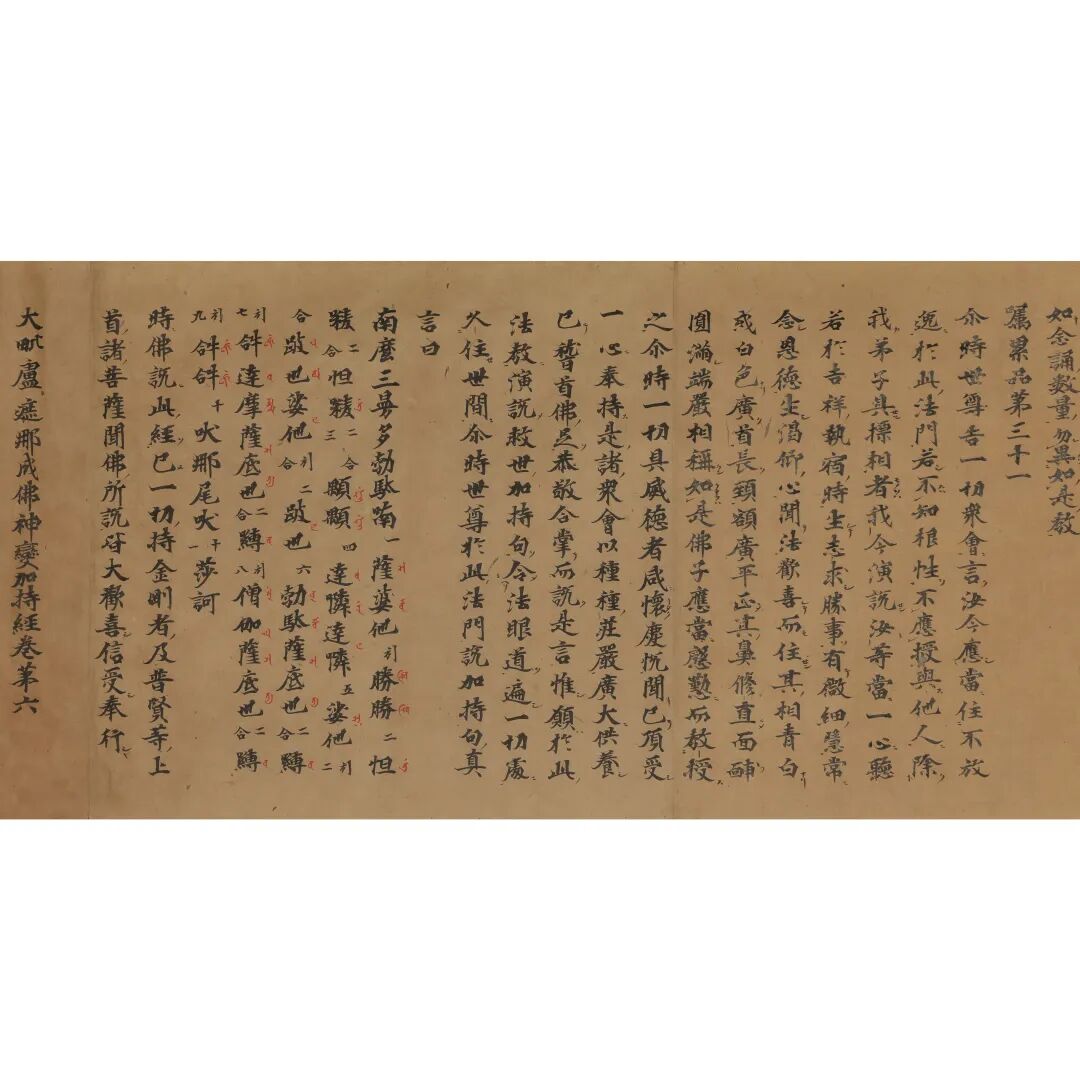 如念誦數量勿異如是教
囑累品第三十一
尒時世尊告一切衆會言汝今應當住不放
逸於此法門若不知根性不應授與他人除
我弟子具摽相者我今演說汝等當一心聽
若於吉祥執宿時生志求勝事有微細慧常
念恩德生渴仰心聞法歡喜而住其相青白
或白色廣首長頸額廣平正其鼻脩直面䩉
圓滿端嚴相稱如是佛子應當慇懃而教授
之尒時一切具威德者咸懷慶悅聞已頂受
一心奉持是諸衆會以種種莊嚴廣大供養
已稽首佛足恭敬合掌而說是言惟願於此
法教演說救世加持句令法眼道遍一切處
久住世間尒時世尊於此法門說加持句真
言曰
南麼三曼多勃馱喃一薩婆他引勝勝二怛
䅘二合怛䅘二合三顒顒四達隣達隣五娑他引二
合跛也娑他引二合跛也六勃馱薩底也二合䩛
引七𤙖達摩薩底也二合䩛引八僧伽薩底也二合䩛
引九𤙖𤙖十吠那尾吠十一莎訶
時佛說此經已一切持金剛者及普賢等上
首諸菩薩聞佛所說皆大歡喜信受奉行
大毗盧遮那成佛神變加持經卷第六